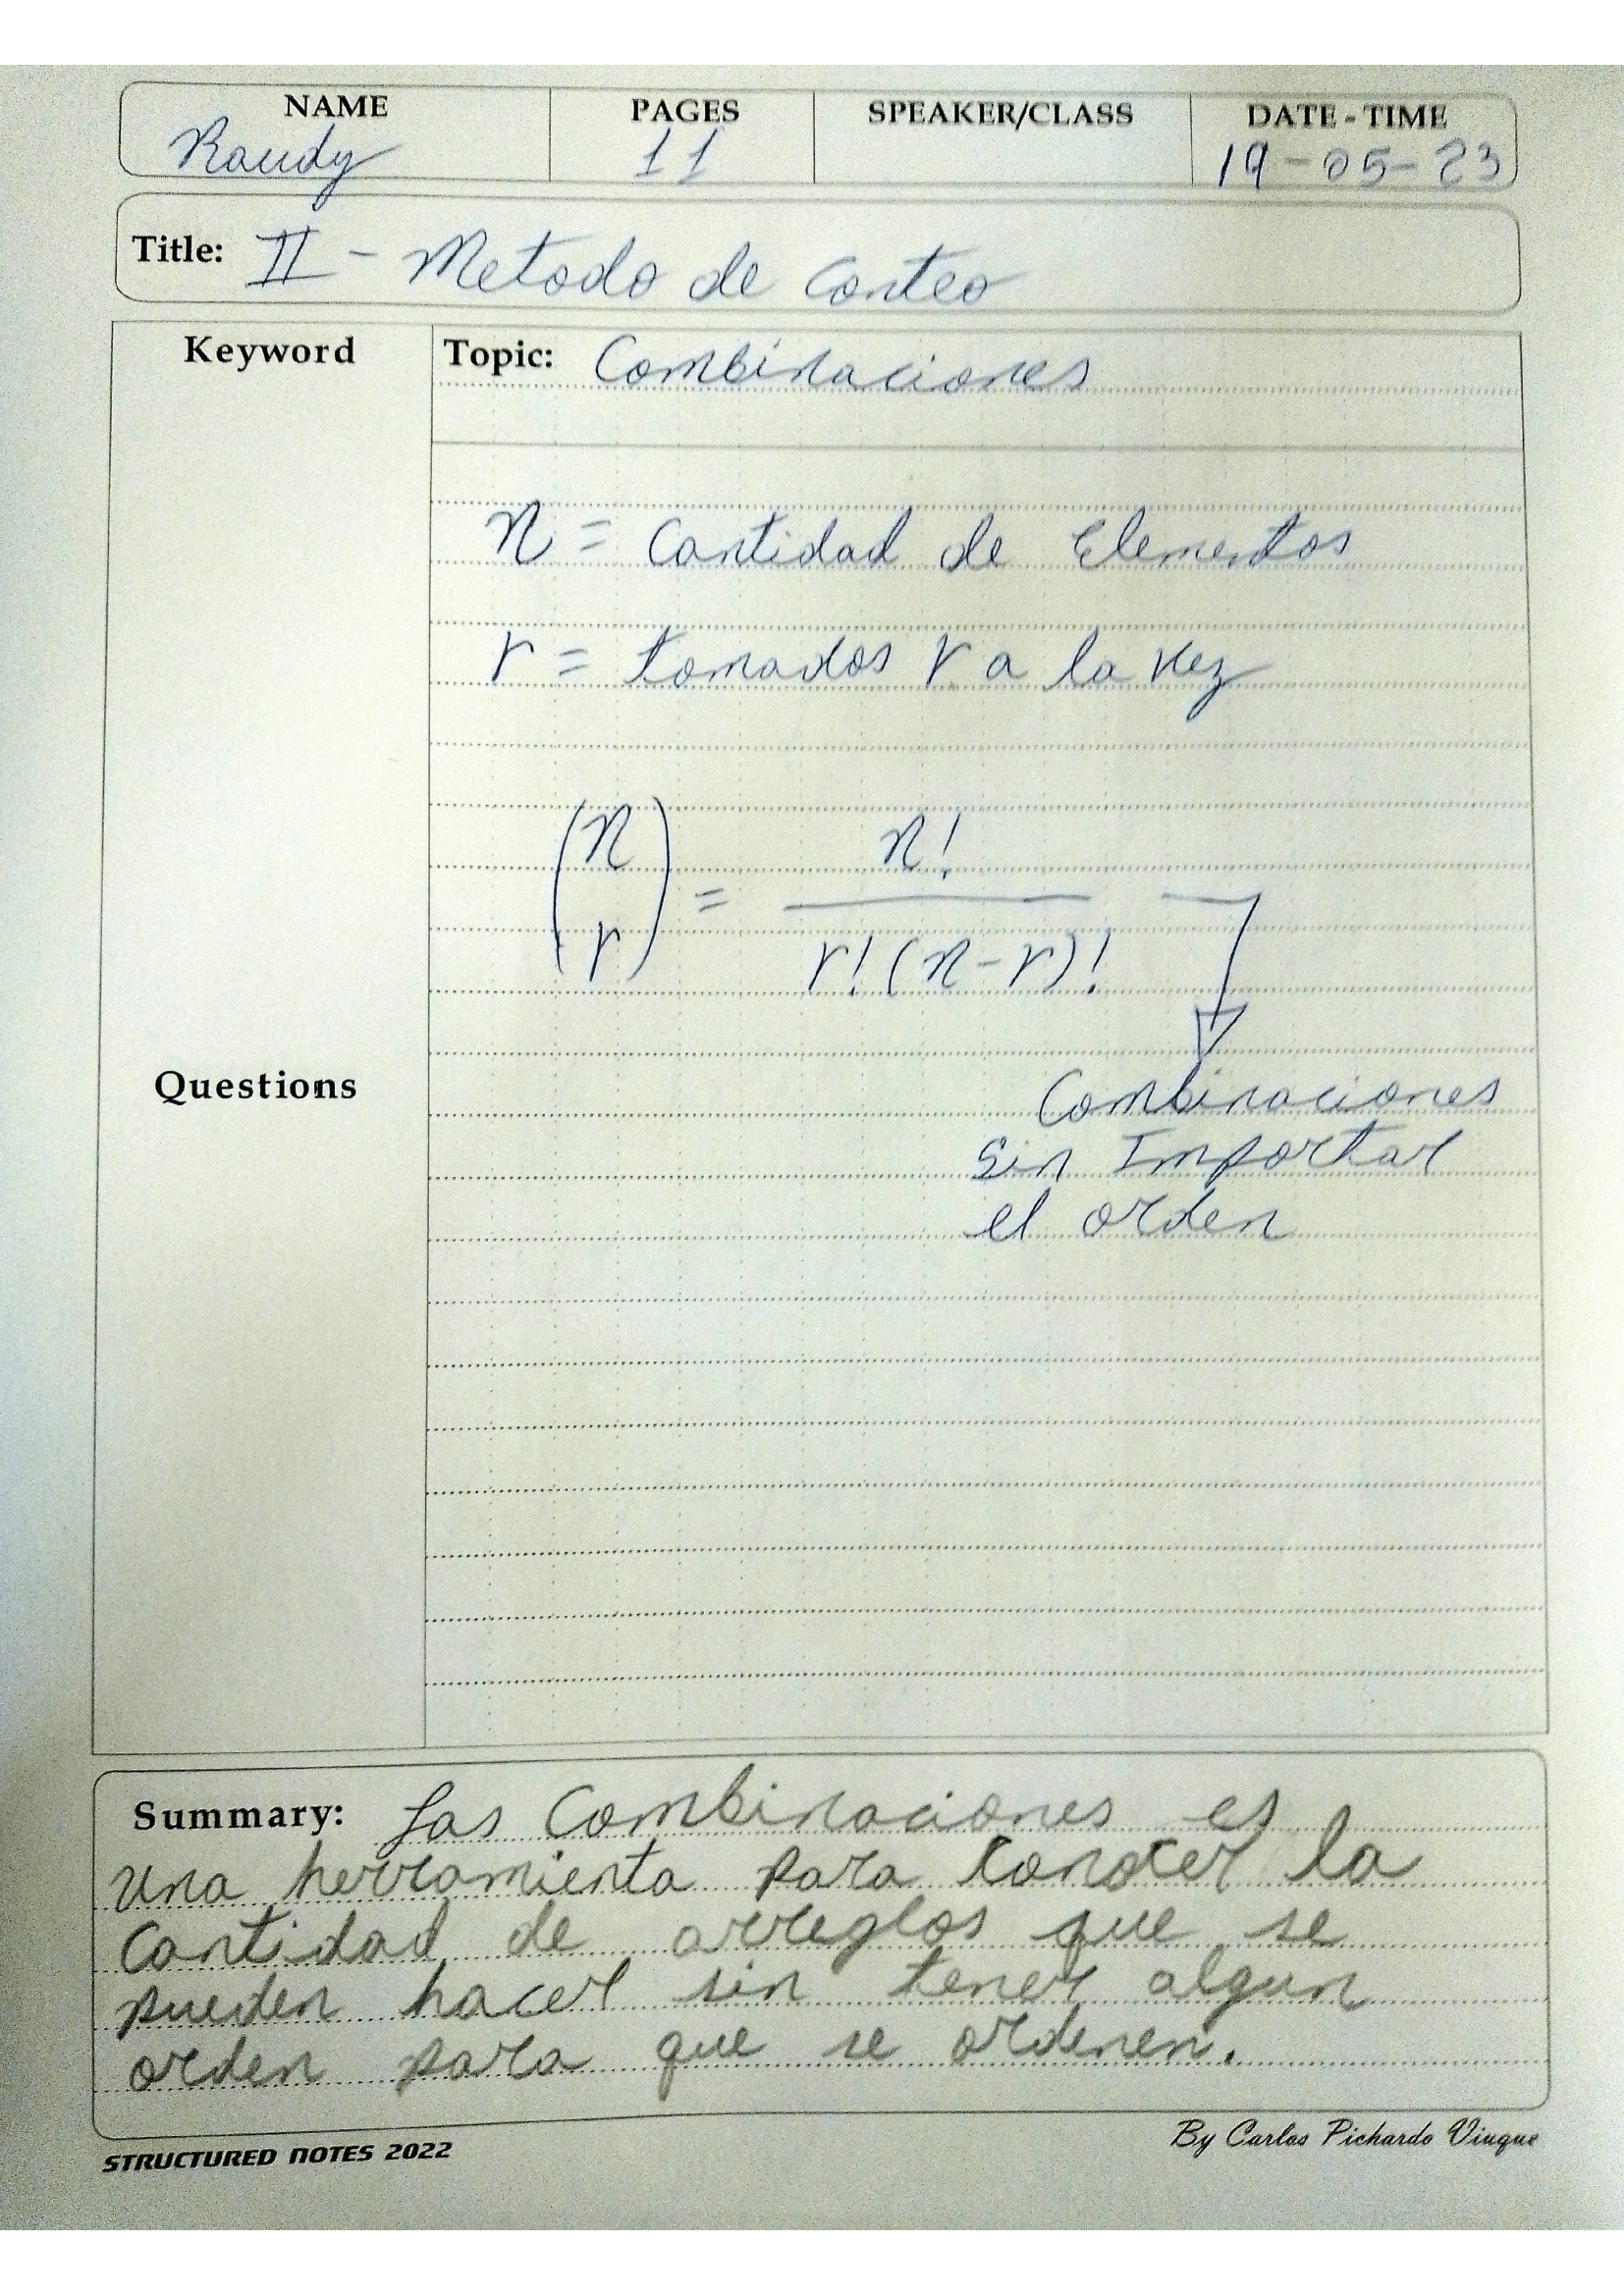 NAME PAGES SPEAKER/CLASS DATE-TIME
Raudy 11 19-05-23
Title: II - Metodo de conteo
Keyword Topic: Combinaciones
n = Cantidad de Elementos
r = tomados r a la vez
(n r) = n! / r!(n-r)!
Questions
Combinaciones
Sin Importar
el orden
Summary: Las Combinaciones es
una herramienta para conocer la
Cantidad de arreglos que se
pueden hacer sin tener algun
orden para que se ordenen.
STRUCTURED NOTES 2022 By Carlos Pichardo Viuque